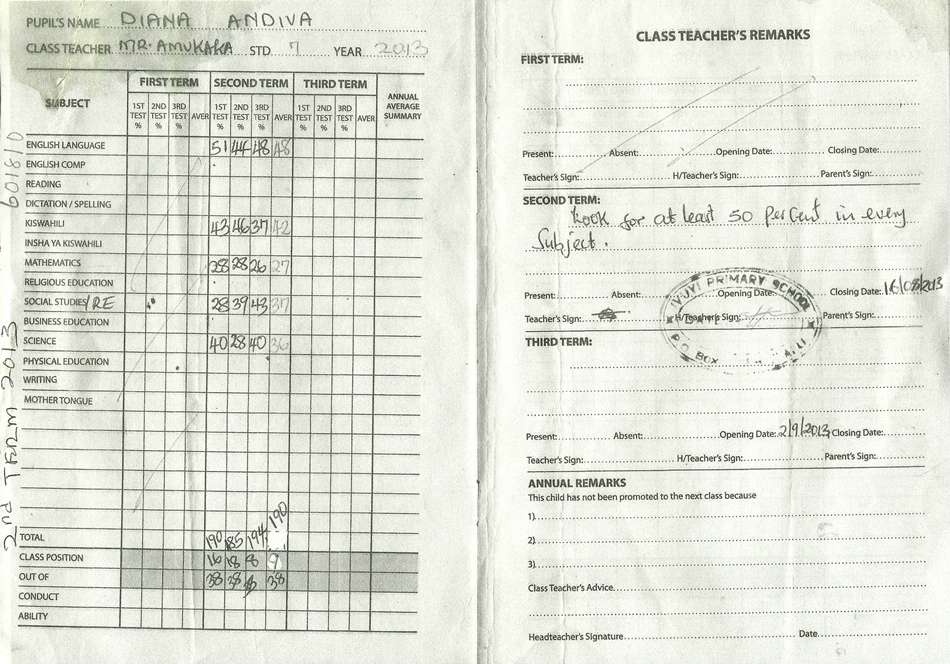 PUPIL'S NAME DIANA ANDIVA
CLASS TEACHER MR. AMUKAKA STD 7 YEAR 2013
SUBJECT FIRST TERM SECOND TERM THIRD TERM ANNUAL AVERAGE SUMMARY
1ST TEST % 2ND TEST % 3RD TEST % AVER 1ST TEST % 2ND TEST % 3RD TEST % AVER 1ST TEST % 2ND TEST % 3RD TEST % AVER
ENGLISH LANGUAGE 51 44 48 48
ENGLISH COMP
READING
DICTATION / SPELLING
KISWAHILI 43 46 37 42
INSHA YA KISWAHILI
MATHEMATICS 28 28 26 27
RELIGIOUS EDUCATION
SOCIAL STUDIES/RE 28 39 43 37
BUSINESS EDUCATION
SCIENCE 40 28 40 36
PHYSICAL EDUCATION
WRITING
MOTHER TONGUE
TOTAL 190 185 194 190
CLASS POSITION 16 18 8 9
OUT OF 38 38 38
CONDUCT
ABILITY
2nd TERM 2013
601810
CLASS TEACHER'S REMARKS
FIRST TERM:
Present: Absent: Opening Date: Closing Date:
Teacher's Sign: H/Teacher's Sign: Parent's Sign:
SECOND TERM:
Look for at least 50 percent in every
Subject.
Present: Absent: Opening Date: Closing Date: 16/08/2013
Teacher's Sign: H/Teacher's Sign: Parent's Sign:
PRIMARY SCHOOL
P.O. BOX
THIRD TERM:
Present: Absent: Opening Date: 2/9/2013 Closing Date:
Teacher's Sign: H/Teacher's Sign: Parent's Sign:
ANNUAL REMARKS
This child has not been promoted to the next class because
1)
2)
3)
Class Teacher's Advice
Headteacher's Signature Date